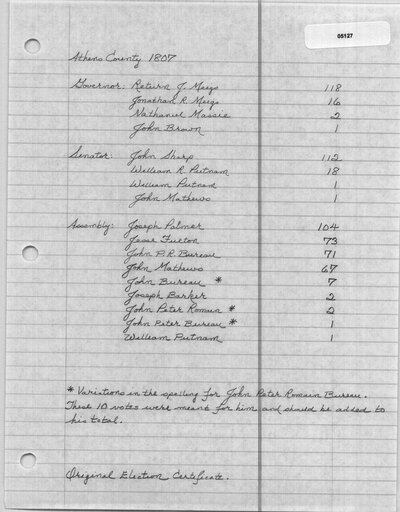 05127
Athens County 1807
Governor: Return J. Meigs 118
Jonathan R. Meigs 16
Nathaniel Massie 2
John Brown 1
Senator: John Sharp 112
William R. Putnam 18
William Putnam 1
John Mathews 1
Assembly: Joseph Palmer 104
Jesse Fulton 73
John P. R. Bureau 71
John Mathews 67
John Bureau * 7
Joseph Barker 2
John Peter Romain * 2
John Peter Bureau * 1
William Putnam 1
* Variations in the spelling for John Peter Romain Bureau.
These 10 votes were meant for him and should be added to
his total.
Original Election Certificate.